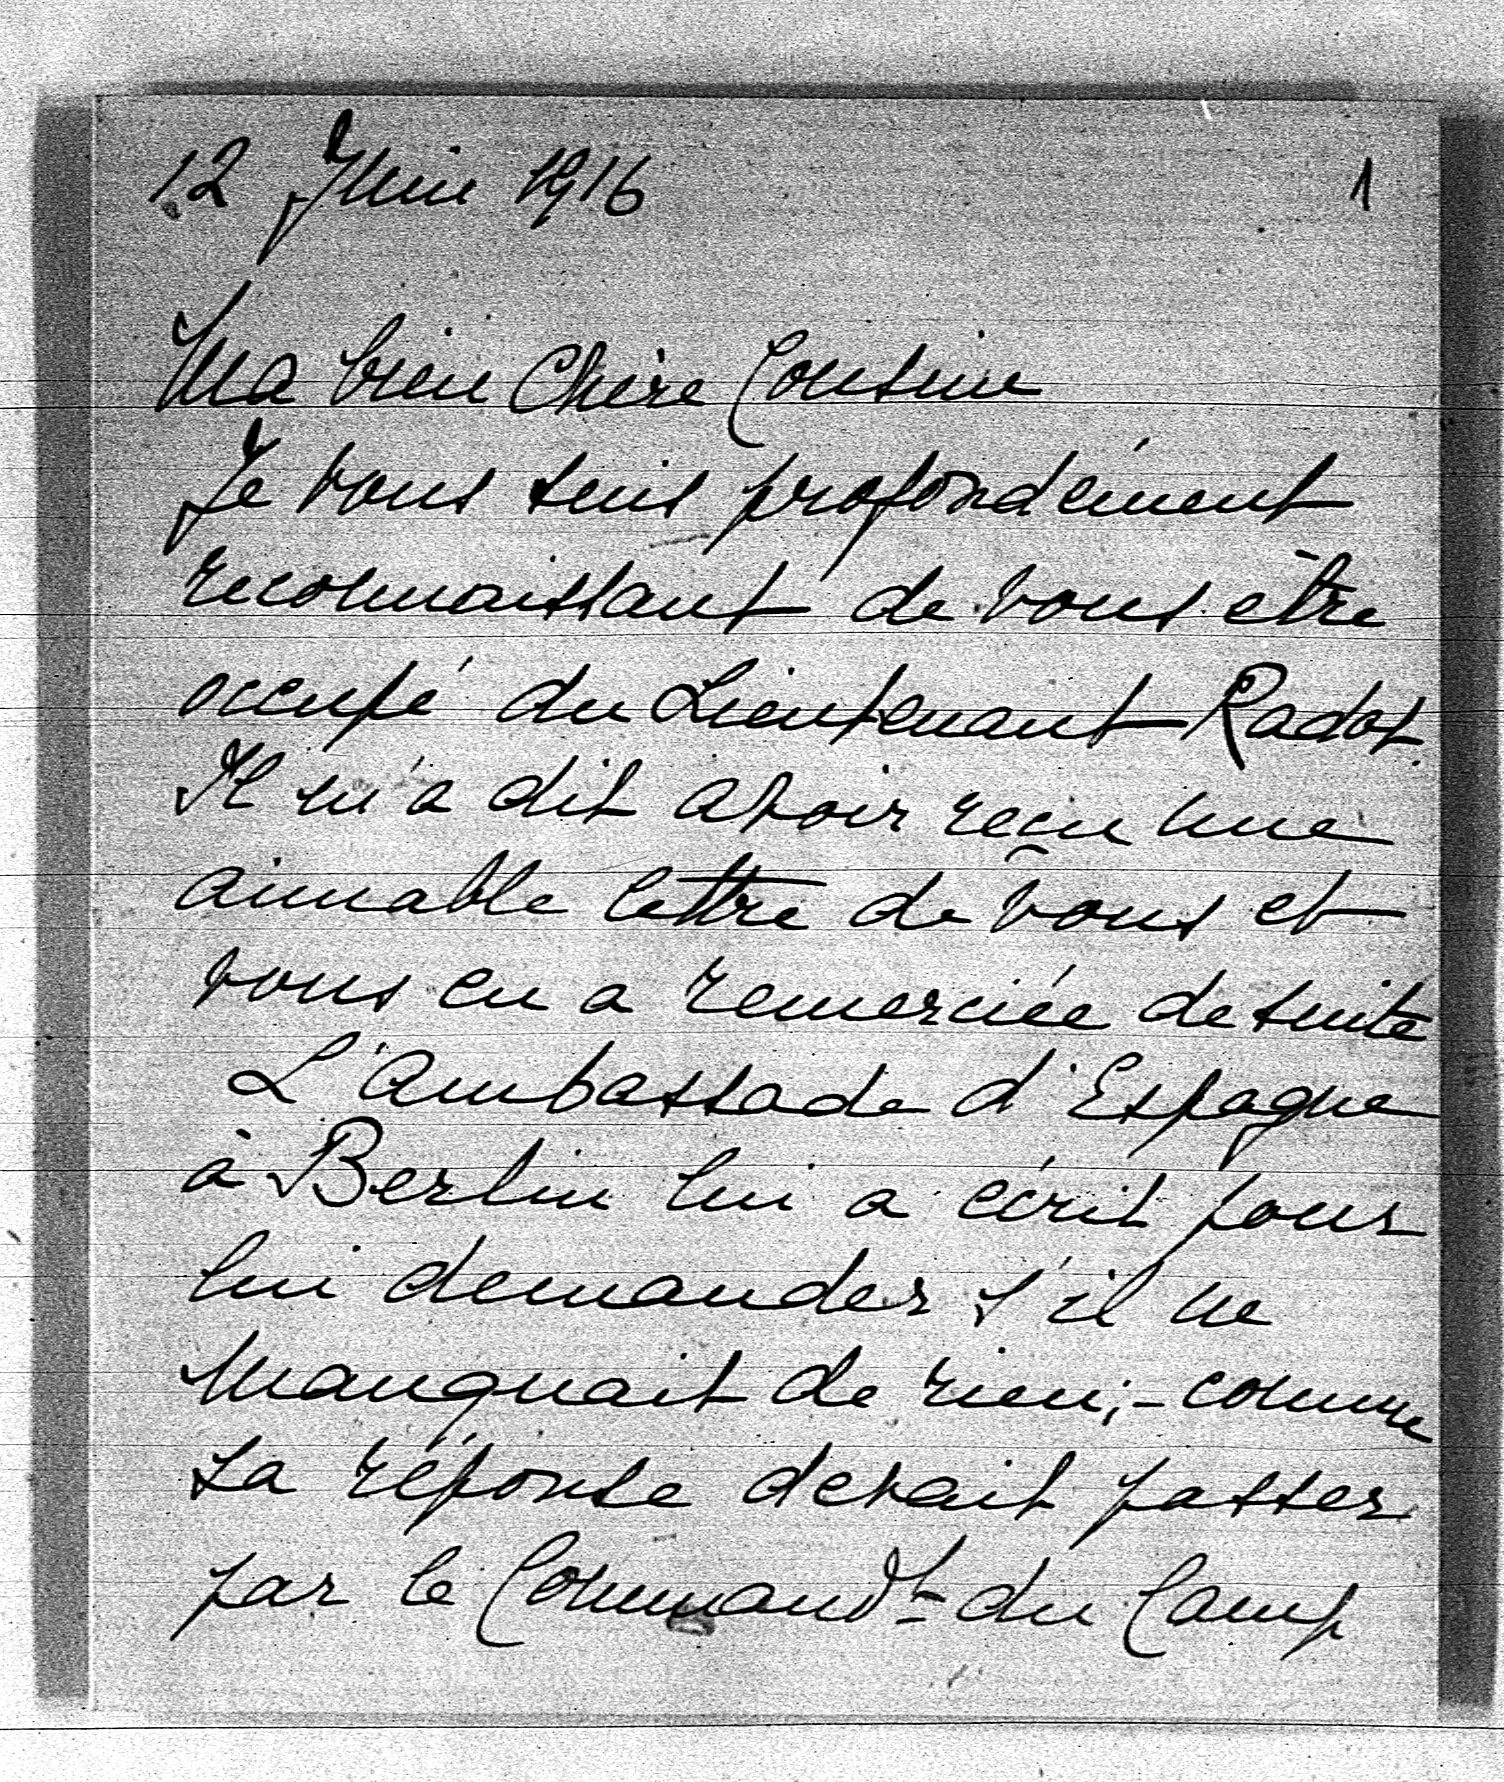 12 Juin 1916
1
Ma bien Chère Cousine
Je vous suis profondément
reconnaissant de vous être
occupé du Lieutenant Radot.
Il m'a dit avoir reçu une
aimable lettre de vous et
vous en a remerciée de suite
L'Ambassade d'Espagne
à Berlin lui a écrit pour
lui demander s'il ne
manquait de rien; - comme
sa réponse devait passer
par le Commandt du Camp